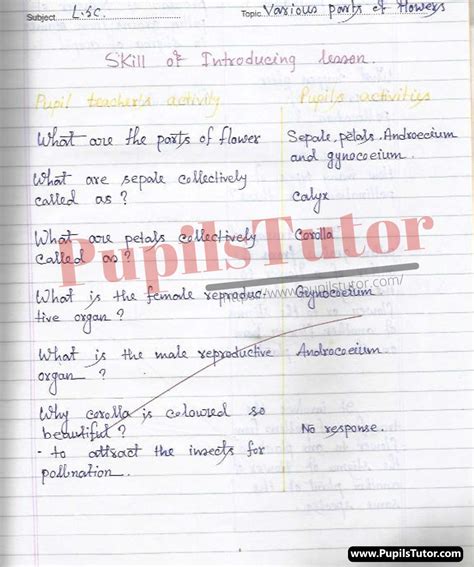 Subject L.Sc. Topic Various parts of flowers
Skill of Introducing lesson.
Pupil teacher's activity Pupil's activities
What are the parts of flower Sepale, petals, Androecium
and gynocoeium.
What are sepale collectively
called as ? calyx
What are petals collectively Corolla
called as ?
PupilsTutor
www.pupilstutor.com/
What is the female reproduc- Gynocoeium
tive organ ?
What is the male reproductive Androcoeium.
organ ?
Why corolla is coloured so
beautiful ? No response.
- to attract the insects for
pollination.
www.PupilsTutor.com